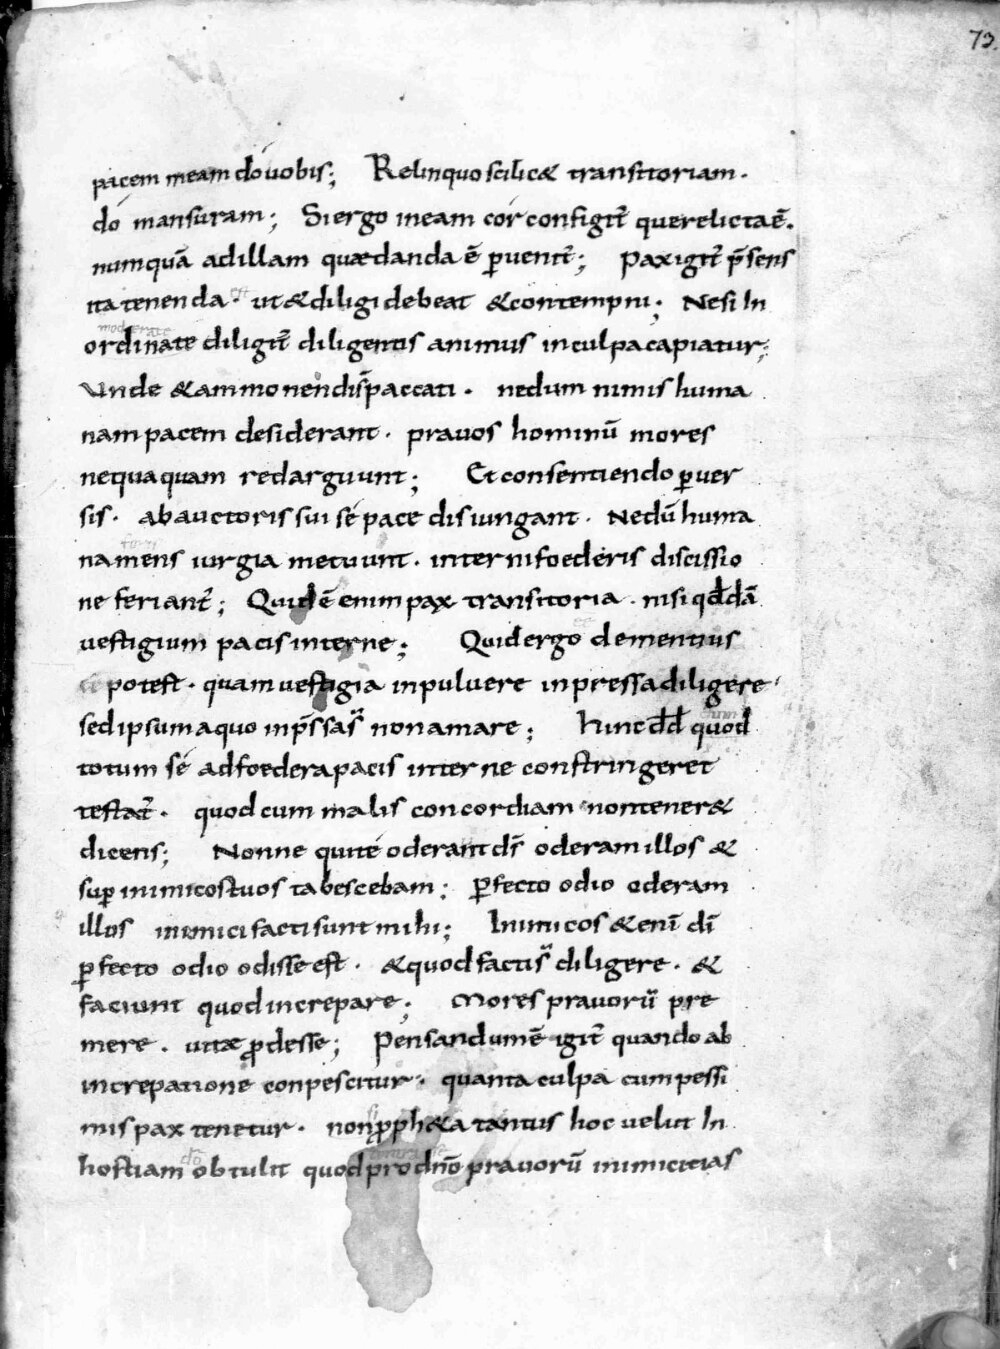 73.
pacem meam do uobis; Relinquo scilic& transitoriam.
dó mansuram; Si ergo in eam cór configit̄ que relicta ē.
numquā ad illam quæ danda ē ꝑuenit̄; Pax igit̄ p̄sens
ita tenenda . ut & diligi debeat & contempni; Ne si In
moderate
ordinate diligit̄ diligentis animus in culpa capiatur;
Unde & ammonendi s̄ paccati . ne dum nimis huma
nam pacem desiderant . prauos hominū mores
nequaquam redarguunt; Et consentiendo ꝑuer
sis . ab auctoris sui sé pace disiungant . Ne dū huma
na mens iurgia metuunt . interni foederis discissio
ne feriant̄; Quid ē enim pax transitoria . nisi qđdā
uestigium pacis interne; Quid ergo dementius
potest . quam uestigia in puluere inpressa diligere
sed ipsum a quo inp̄ssa s̄ non amare; hinc dd̄ quod
totum sé ad foedera pacis interne constringeret
testat̄ . quod cum malis concordiam non tener&
dicens; Nonne qui té oderant dn̄s oderam illos &
suꝑ inimicos tuos tabescebam; ꝑfecto odio oderam
illos inimici facti sunt mihi; Inimicos & enī dī
ꝑfecto odio odisse est . & quod facti s̄ diligere . &
faciunt quod increpare; Mores prauorū pre
mere . uitæ ꝓdesse; Pensandum ē igit̄ quando ab
increpatione conpescitur . quanta culpa cum pessi
mis pax tenetur . non ꝓph&a tantus hoc uelut In
hostiam obtulit quod pro dn̄o prauorū inimicitias